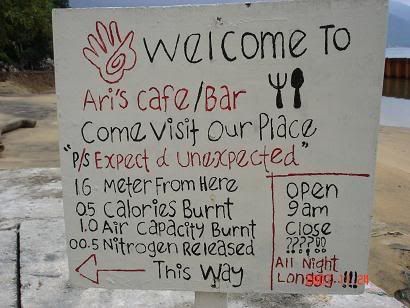 Welcome To
Ari's Cafe/Bar
Come Visit Our Place
"P/s Expect d unexpected"
16 Meter From Here
05 Calories Burnt
1.0 Air Capacity Burnt
00.5 Nitrogen Released
This Way
Open
9am
Close
????!!
All Night
Longgg!!!